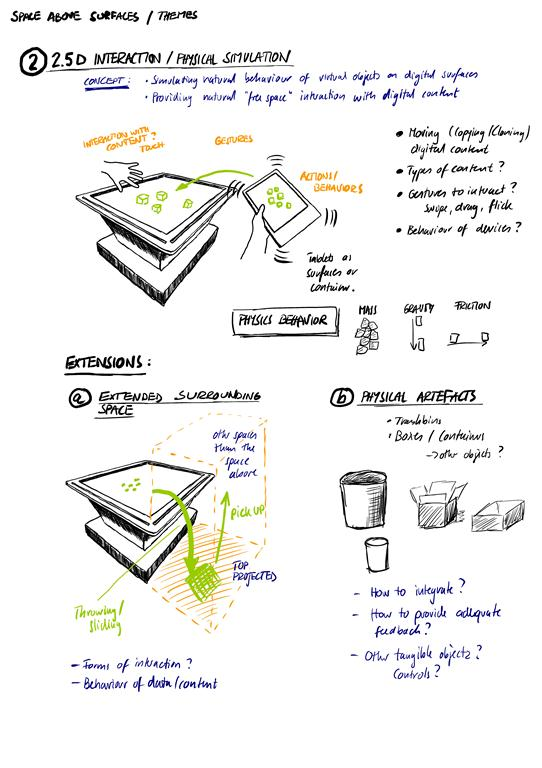 SPACE ABOVE SURFACES / THEMES
② 2.5D INTERACTION / PHYSICAL SIMULATION
CONCEPT: • Simulating natural behaviour of virtual objects on digital surfaces
• Providing natural "free space" interaction with digital content
INTERACTION WITH
CONTENT?
TOUCH
GESTURES
ACTIONS/
BEHAVIORS
Tablets as
surfaces or
containers.
• Moving (Copying/Cloning)
digital content
• Types of content?
• Gestures to interact?
swipe, drag, flick
• Behaviour of devices?
PHYSICS BEHAVIOR
MASS
GRAVITY
FRICTION
EXTENSIONS:
ⓐ EXTENDED SURROUNDING
SPACE
other spaces
than the
space
above
PICK UP
TOP
PROJECTED
Throwing/
sliding
– Forms of interaction?
– Behaviour of data/content
ⓑ PHYSICAL ARTEFACTS
• Trashbins
• Boxes / Containers
→ other objects?
– How to integrate?
– How to provide adequate
feedback?
– Other tangible objects?
Controls?